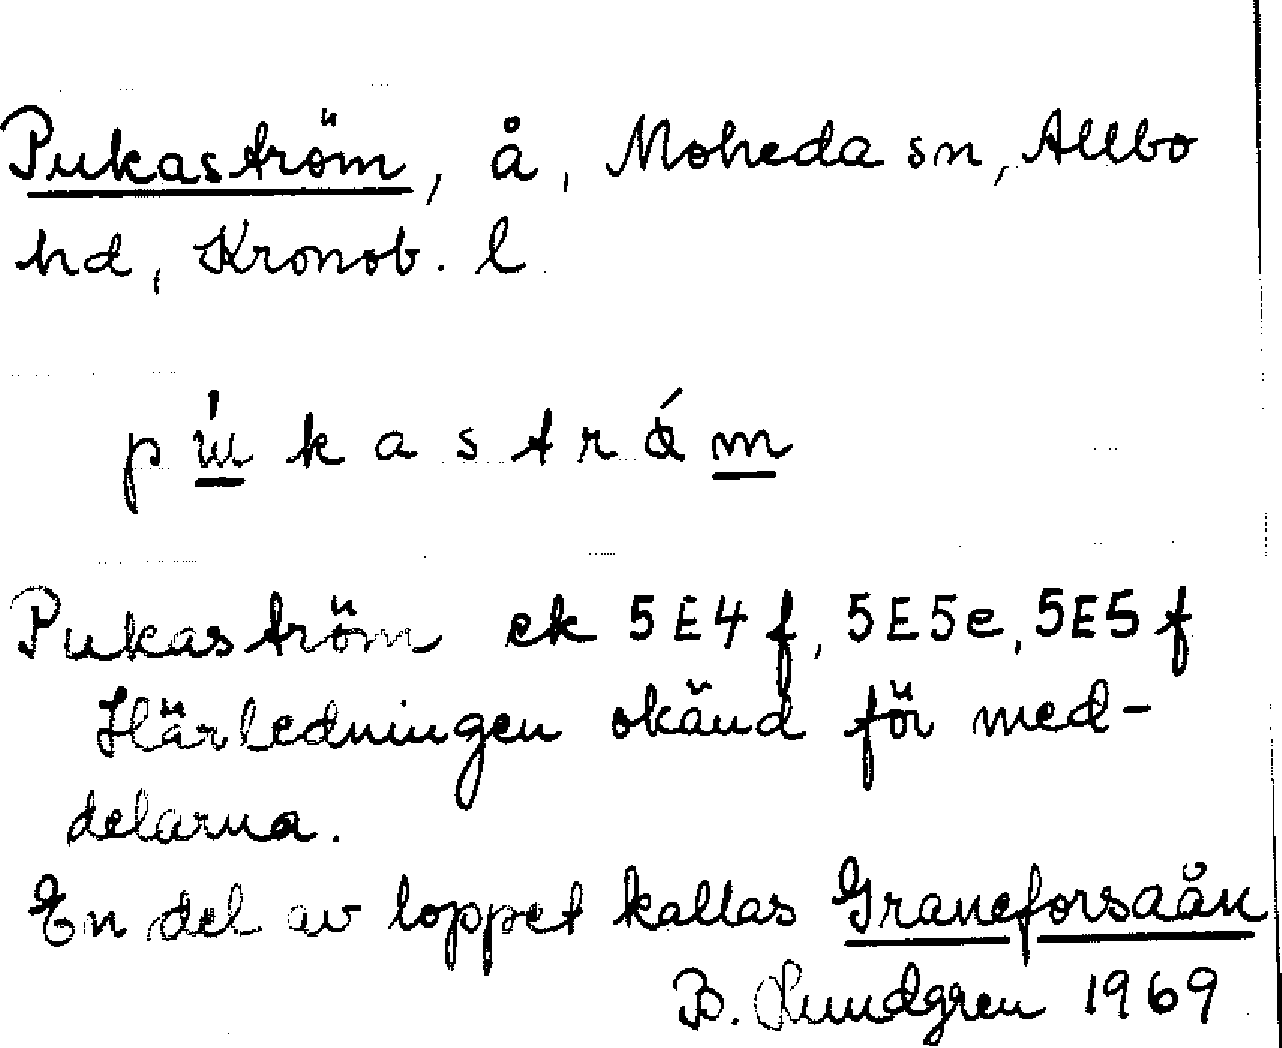 Pukaström, å, Moheda sn, Allbo
hd, Kronob. l
Pukaström ek 5E4f, 5E5e, 5E5f
Härledningen okänd för med-
delarna.
En del av loppet kallas Graneforsaån
B. Lundgren 1969